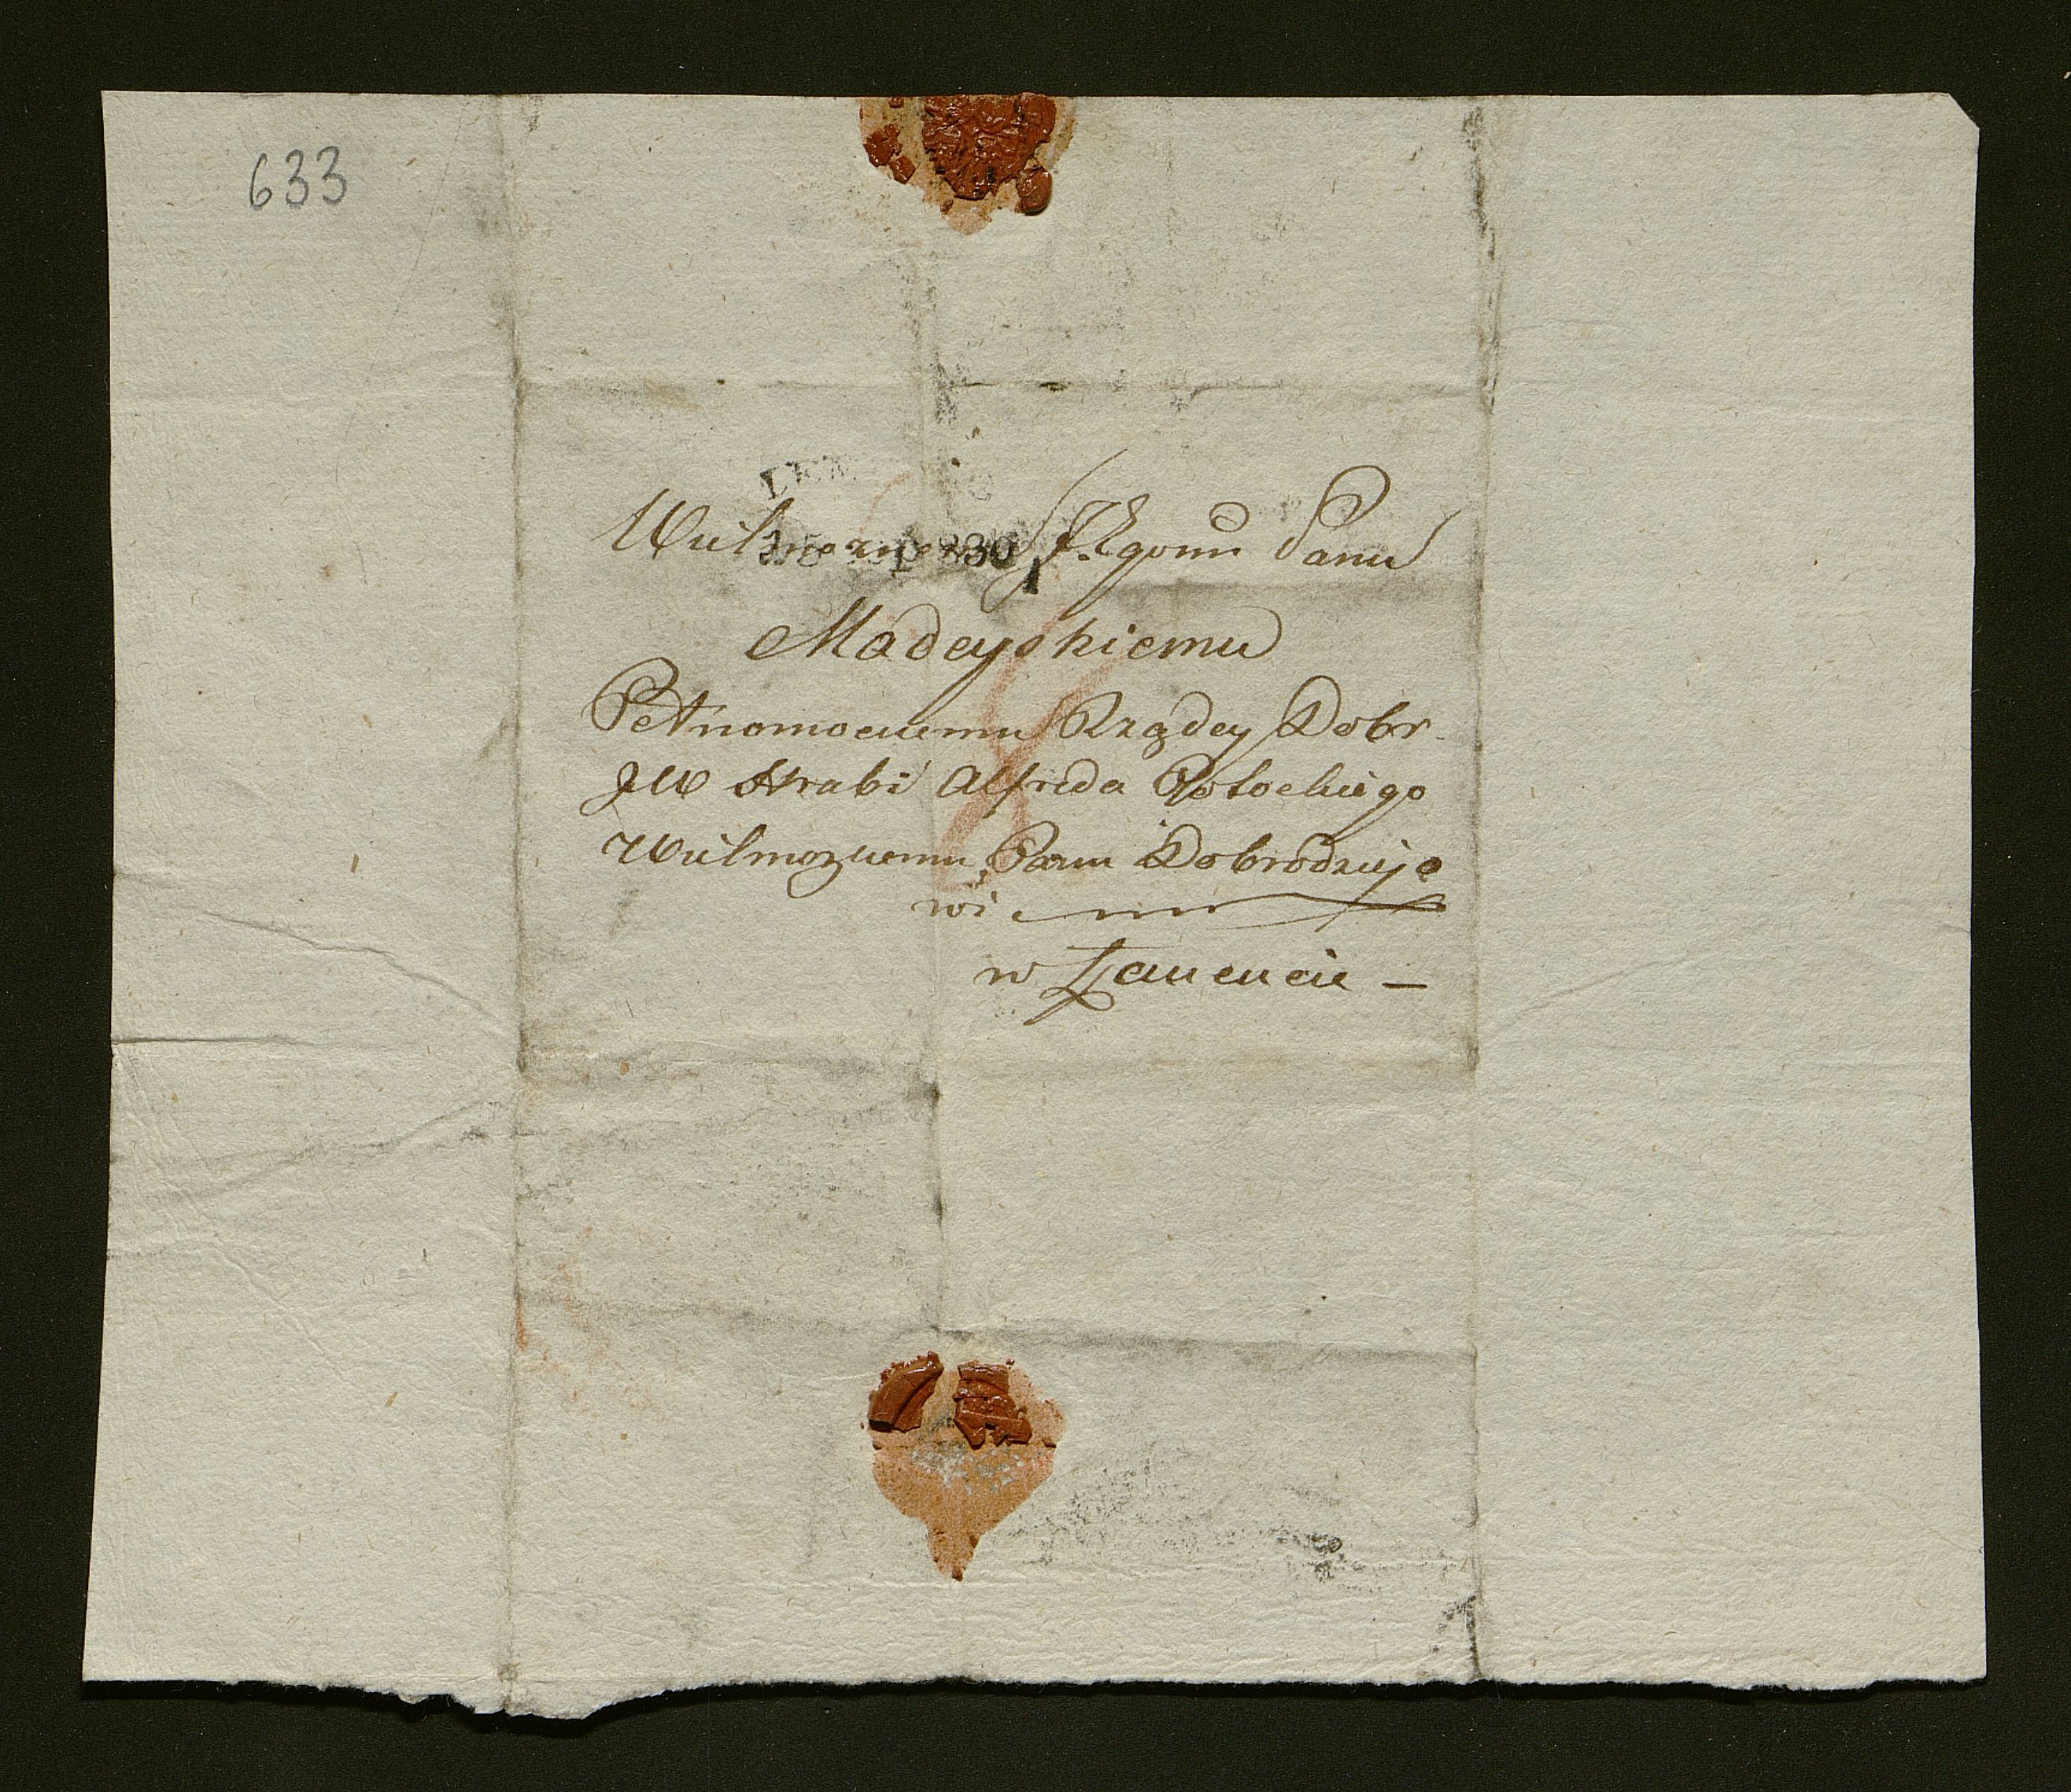 633
LEM
830
Wielmożnemu JEgomu Panu
Madeyskiemu
Pełnomocnemu Rządcy Dobr
JW Hrabi Alfreda Potockiego
Wielmożnemu Panu Dobrodzieje
wi
w Łancucie —